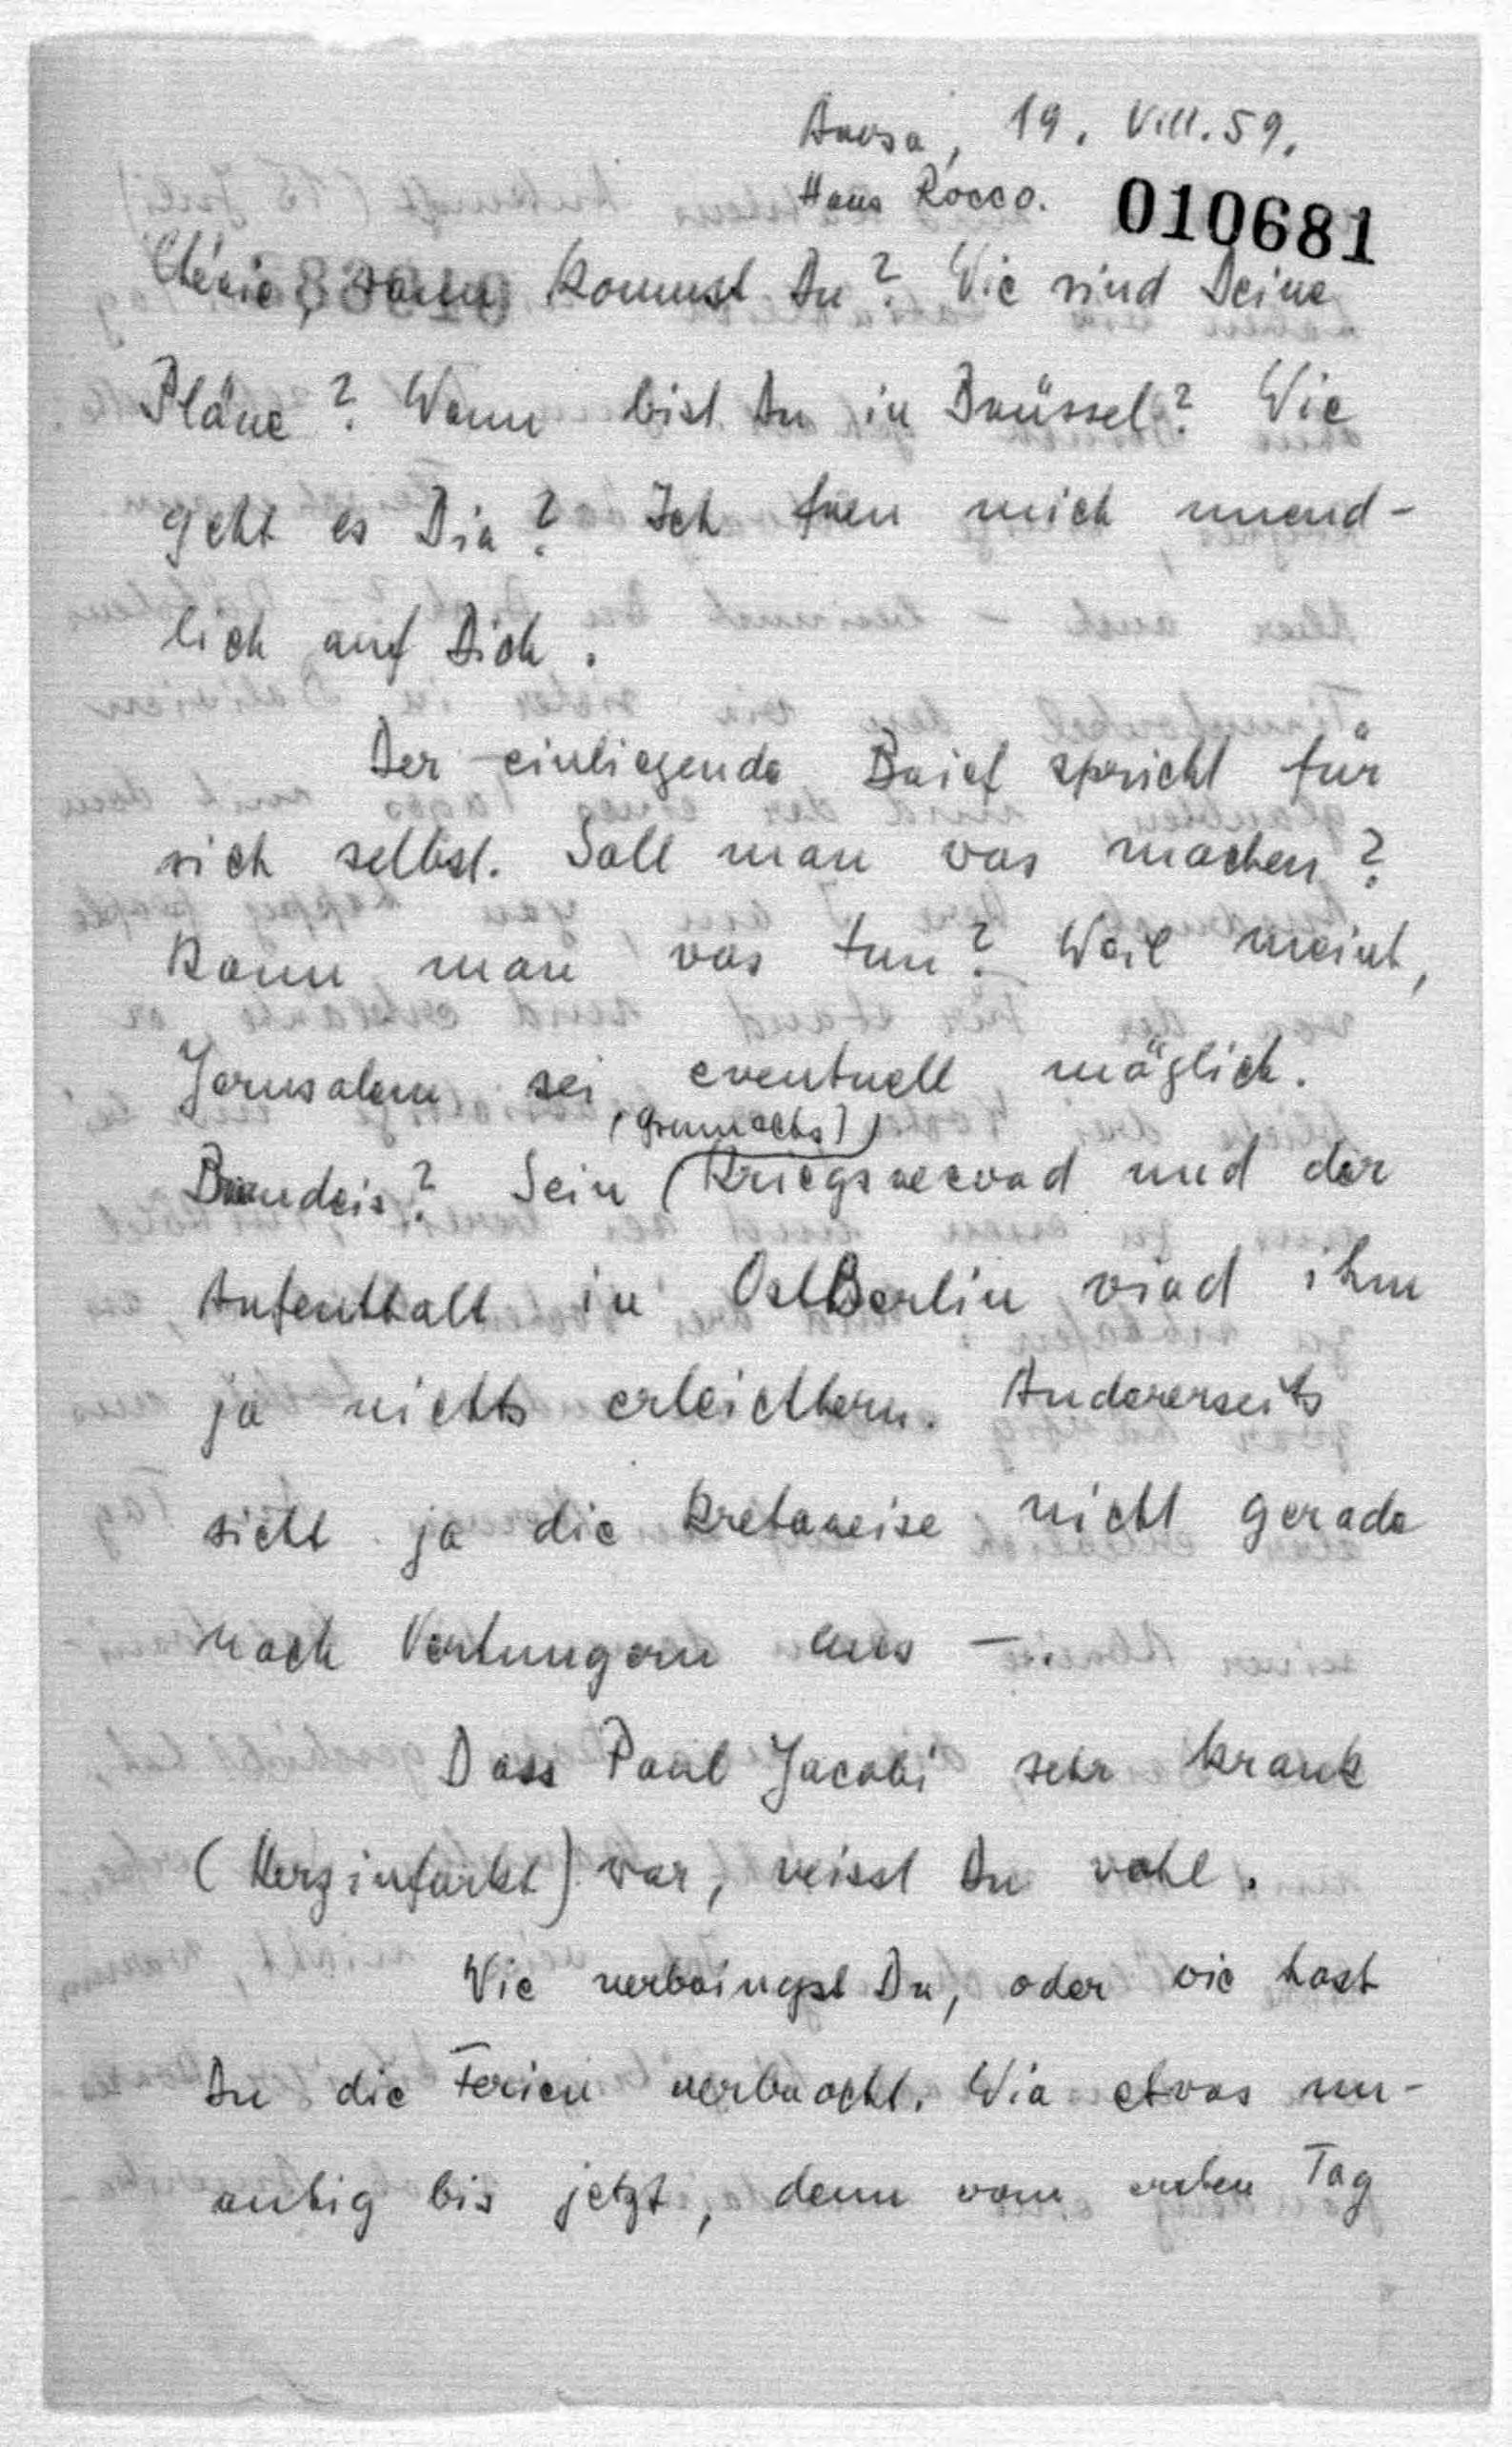 Arosa, 19. VIII. 59.
Haus Rocco.
010681
Chérie, wann kommst Du? Wie sind Deine
Pläne? Wann bist Du in Brüssel? Wie
geht es Dir? Ich freu mich unend-
lich auf Dich.
Der einliegende Brief spricht für
sich selbst. Soll man was machen?
Kann man was tun? Weil meint,
Jerusalem sei eventuell möglich.
(Grumachs)
Brandeis? Sein (Kriegsrecord und der
Aufenthalt in OstBerlin wird ihm
ja nichts erleichtern. Andererseits
sieht ja die Kretareise nicht gerade
nach Verhungern aus —.
Dass Paul Jacobi sehr krank
(Herzinfarkt) war, weisst Du wohl.
Wie verbringst Du, oder wie hast
Du die Ferien verbracht. Wir etwas un-
ruhig bis jetzt, denn vom ersten Tag